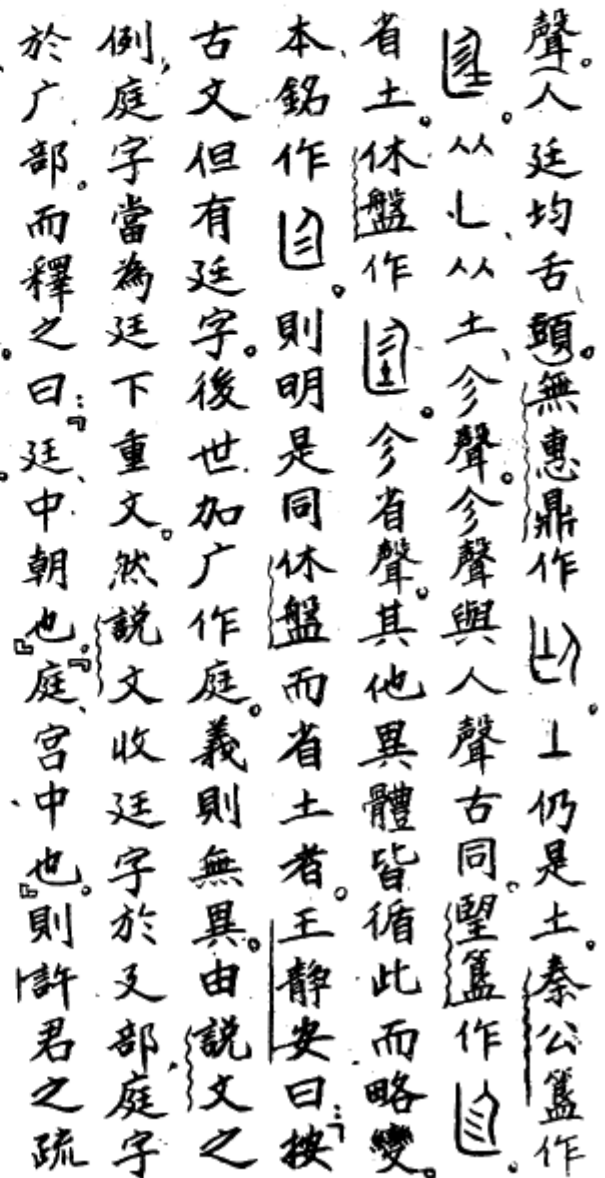 聲。（人廷均舌頭）。無惠鼎作。丄仍是土。秦公簋作
。从乚、从土、㐱聲。㐱聲與人聲古同。望簋作。
省土。休盤作。㐱省聲。其他異體皆循此而略變。
本銘作。則明是同休盤而省土者。王靜安曰：「按
古文但有廷字。後世加广作庭。義則無異。由說文之
例，庭字當為廷下重文。然說文收廷字於廴部，庭字
於广部。而釋之曰：「廷、中朝也。」『庭、宮中也。』則許君之疏